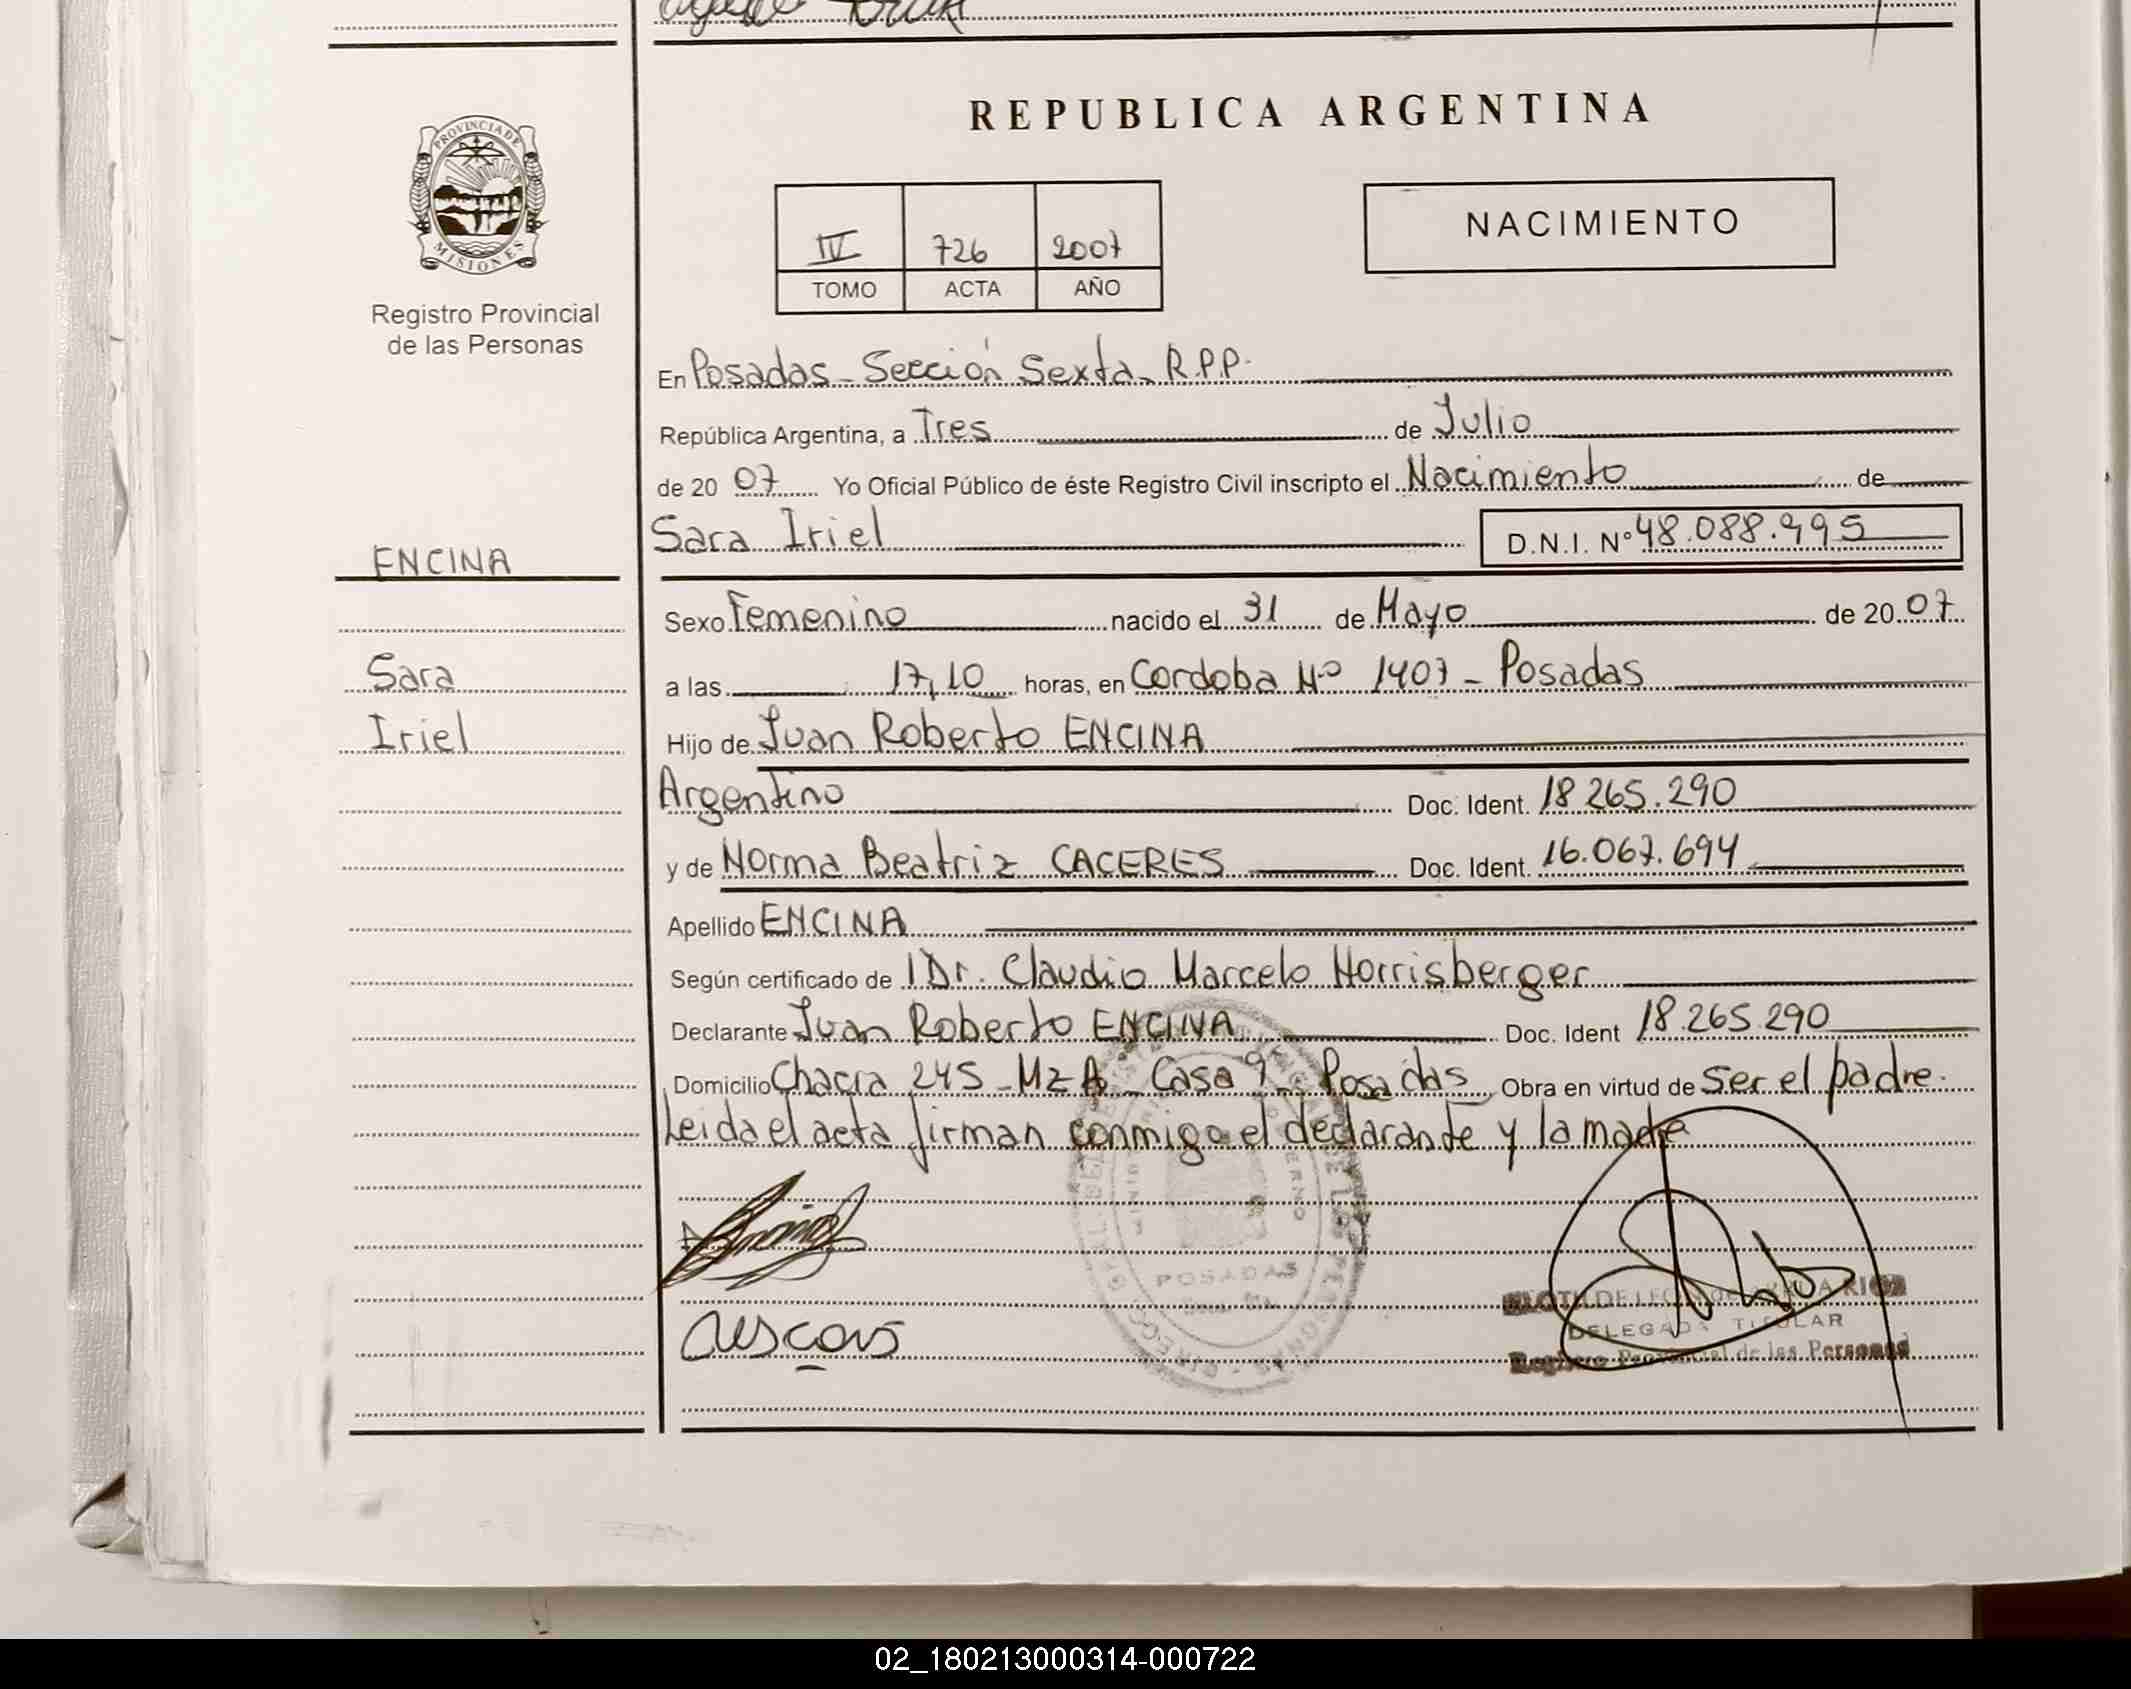 REPUBLICA ARGENTINA
PROVINCIA DE
MISIONES
Registro Provincial
de las Personas
NACIMIENTO
IV 726 2007
TOMO ACTA AÑO
En Posadas - Sección Sexta - R.P.P.
República Argentina, a Tres de Julio
de 20 07 Yo Oficial Público de éste Registro Civil inscripto el Nacimiento de
Sara Iriel D.N.I. Nº 48.088.995
ENCINA
Sexo Femenino nacido el 31 de Mayo de 20 07
Sara
a las 17,10 horas, en Cordoba Nº 1407 - Posadas
Iriel
Hijo de Juan Roberto ENCINA
Argentino Doc. Ident. 18.265.290
y de Norma Beatriz CACERES Doc. Ident. 16.067.694
Apellido ENCINA
Según certificado de Dr. Claudio Marcelo Morrisberger
Declarante Juan Roberto ENCINA Doc. Ident 18.265.290
Domicilio Chacra 245 - Mz A - Casa 9 - Posadas Obra en virtud de ser el padre.
Leida el acta firman conmigo el declarante y la madre
POSADAS
DELEGADA TITULAR
Registro Provincial de las Personas
02_180213000314-000722